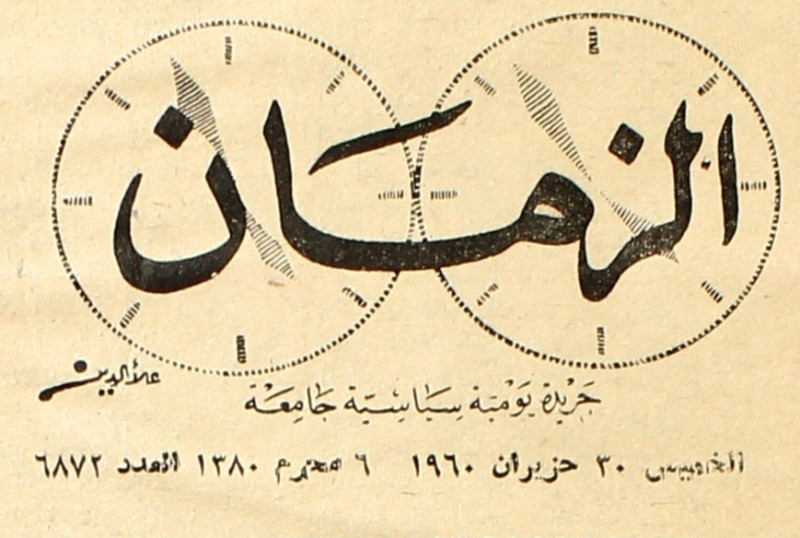 الزمان
علاء الدين
جَريْدة يَوْميَّة سيَاسيَّة جَامِعَة
الخميس ٣٠ حزيران ١٩٦٠ ٦ محرم ١٣٨٠ العدد ٦٨٧٢